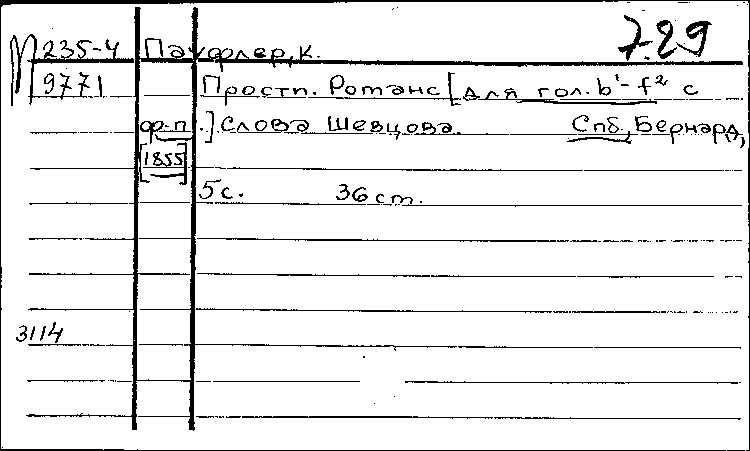 7.29
М 235-4 Пауфлер, К.
9771 Прости. Романс [для гол. b¹-f² с
ф.-п.] Слова Шевцова. Спб., Бернард,
[1855]
5 с. 36 см.
3114